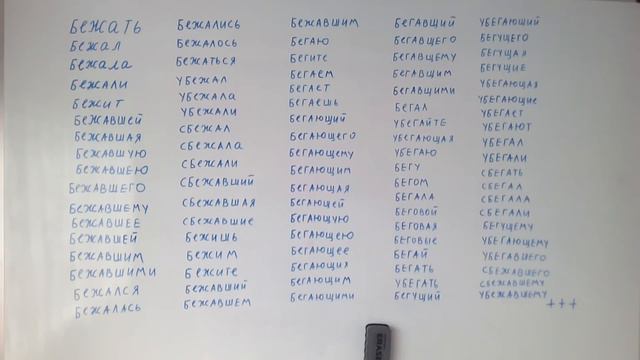 БЕЖАТЬ
БЕЖАЛ
БЕЖАЛА
БЕЖАЛИ
БЕЖИТ
БЕЖАВШЕЙ
БЕЖАВШАЯ
БЕЖАВШУЮ
БЕЖАВШЕЮ
БЕЖАВШЕГО
БЕЖАВШЕМУ
БЕЖАВШЕЕ
БЕЖАВШЕЙ
БЕЖАВШИМ
БЕЖАВШИМИ
БЕЖАЛСЯ
БЕЖАЛАСЬ
БЕЖАЛИСЬ
БЕЖАЛОСЬ
БЕЖАТЬСЯ
УБЕЖАЛ
УБЕЖАЛА
УБЕЖАЛИ
СБЕЖАЛ
СБЕЖАЛА
СБЕЖАЛИ
СБЕЖАВШИЙ
СБЕЖАВШАЯ
СБЕЖАВШИЕ
БЕЖИШЬ
БЕЖИМ
БЕЖИТЕ
БЕЖАВШИЙ
БЕЖАВШЕМ
БЕЖАВШИМ
БЕГАЮ
БЕГИТЕ
БЕГАЕМ
БЕГАЕТ
БЕГАЕШЬ
БЕГАЮЩИЙ
БЕГАЮЩЕГО
БЕГАЮЩЕМУ
БЕГАЮЩИМ
БЕГАЮЩАЯ
БЕГАЮЩЕЙ
БЕГАЮЩУЮ
БЕГАЮЩЕЮ
БЕГАЮЩЕЕ
БЕГАЮЩИХ
БЕГАЮЩИМ
БЕГАЮЩИМИ
БЕГАВЩИЙ
БЕГАВШЕГО
БЕГАВШЕМУ
БЕГАВШИМ
БЕГАВШИМИ
БЕГАЛ
УБЕГАЙТЕ
УБЕГАЮЩАЯ
УБЕГАЮ
БЕГУ
БЕГОМ
БЕГАЛА
БЕГОВОЙ
БЕГОВАЯ
БЕГОВЫЕ
БЕГАЙ
БЕГАТЬ
УБЕГАТЬ
БЕГУЩИЙ
УБЕГАЮЩИЙ
БЕГУЩЕГО
БЕГУЩАЯ
БЕГУЩИЕ
УБЕГАЮЩАЯ
УБЕГАЮЩИЕ
УБЕГАЕТ
УБЕГАЮТ
УБЕГАЛ
УБЕГАЛИ
СБЕГАТЬ
СБЕГАЛ
СБЕГАЛА
СБЕГАЛИ
БЕГУЩЕМУ
УБЕГАЮЩЕМУ
УБЕГАВШЕГО
СБЕЖАВШЕГО
СБЕЖАВШЕМУ
УБЕЖАВШЕМУ
+++